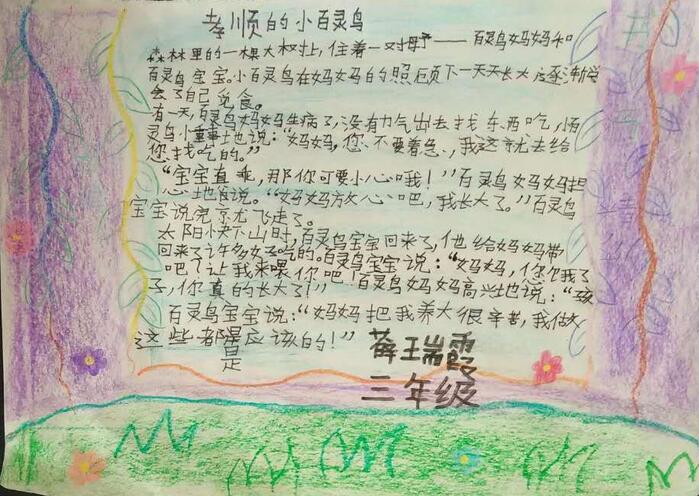 孝顺的小百灵鸟
森林里的一棵大树上,住着一对母子——百灵鸟妈妈和
百灵鸟宝宝。小百灵鸟在妈妈的照顾下一天天长大,逐渐学
会了自己觅食。
有一天,百灵鸟妈妈生病了,没有力气出去找东西吃,小百
灵鸟小事地说:“妈妈,您不要着急,我这就去给
您找吃的。”
“宝宝真乖,那你可要小心哦!”百灵鸟妈妈担
心地说。“妈妈放心吧,我长大了。”百灵鸟
宝宝说完就飞走了。
太阳快下山时,百灵鸟宝宝回来了,他给妈妈带
回来了许多好吃的。百灵鸟宝宝说:“妈妈,你饿了
吧!让我来喂你吧!”百灵鸟妈妈高兴地说:“孩
子,你真的长大了!”
百灵鸟宝宝说:“妈妈把我养大很辛苦,我做
这些都是应该的!”
是
薛瑞霞
三年级